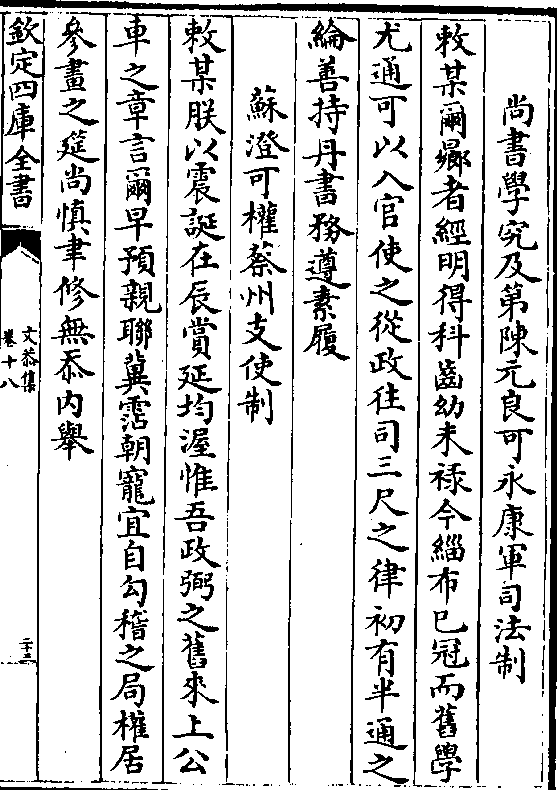 尚書學究及第陳元良可永康軍司法制
敕某爾曏者經明得科齒幼未禄今緇布已冠而舊學
尤通可以入官使之從政往司三尺之律初有半通之
綸善持丹書務遵素履
蘇澄可權蔡州支使制
敕某朕以震誕在辰賞延均渥惟吾政弼之舊來上公
車之章言爾早預親聯冀霑朝寵宜自勾稽之局權居
參畫之筵尚慎聿修無忝内舉
欽定四庫全書
文恭集
卷十八
二十三